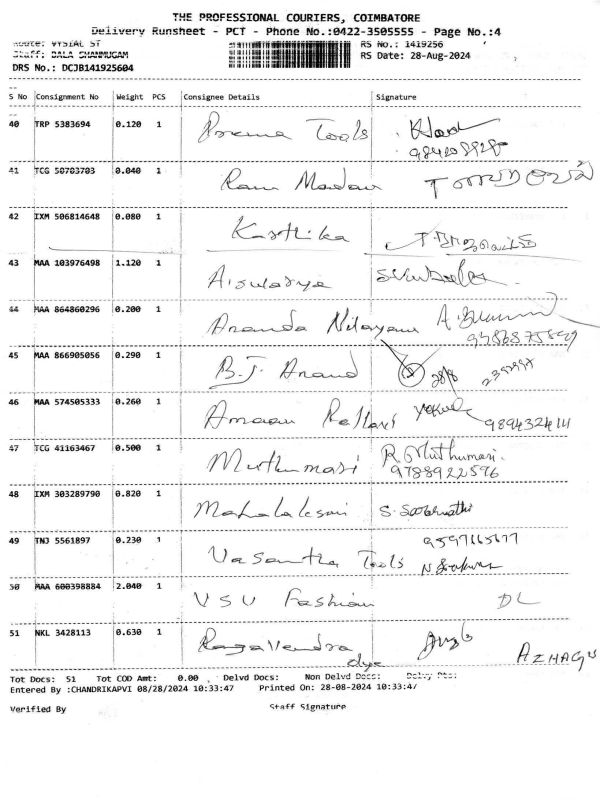 THE PROFESSIONAL COURIERS, COIMBATORE
Delivery Runsheet - PCT - Phone No.:0422-3505555 - Page No.:4
Route: VYSIAL ST RS No.: 1419256
Staff: BALA SHANMUGAM RS Date: 28-Aug-2024
DRS No.: DCJB141925604
S No Consignment No Weight PCS Consignee Details Signature
40 TRP 5383694 0.120 1 Prema Tools
41 TCG 50703703 0.040 1 Ram Madav
42 IXM 506814648 0.080 1 Karthika
43 MAA 103976498 1.120 1 Aiswarya
44 MAA 864860296 0.200 1 Ananda Nilayam
45 MAA 866905056 0.290 1 B.J. Anand 28/8
46 MAA 574505333 0.260 1
47 TCG 41163467 0.500 1 Muthumasi R. Muthumari.
9788922596
48 IXM 303289790 0.820 1 Mahalaksmi
49 TNJ 5561897 0.230 1 Vasantha Tools 9597665677
50 MAA 600398884 2.040 1 VSU Fashion DL
51 NKL 3428113 0.630 1 Ragavendra dye AZHAGU
Tot Docs: 51 Tot COD Amt: 0.00 Delvd Docs: Non Delvd Docs: Delvy Pts:
Entered By :CHANDRIKAPVI 08/28/2024 10:33:47 Printed On: 28-08-2024 10:33:47
Verified By Staff Signature